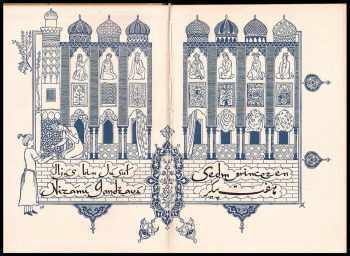 Iljás bin Jusuf
Nizámí Gandžaví
Sedm princezen